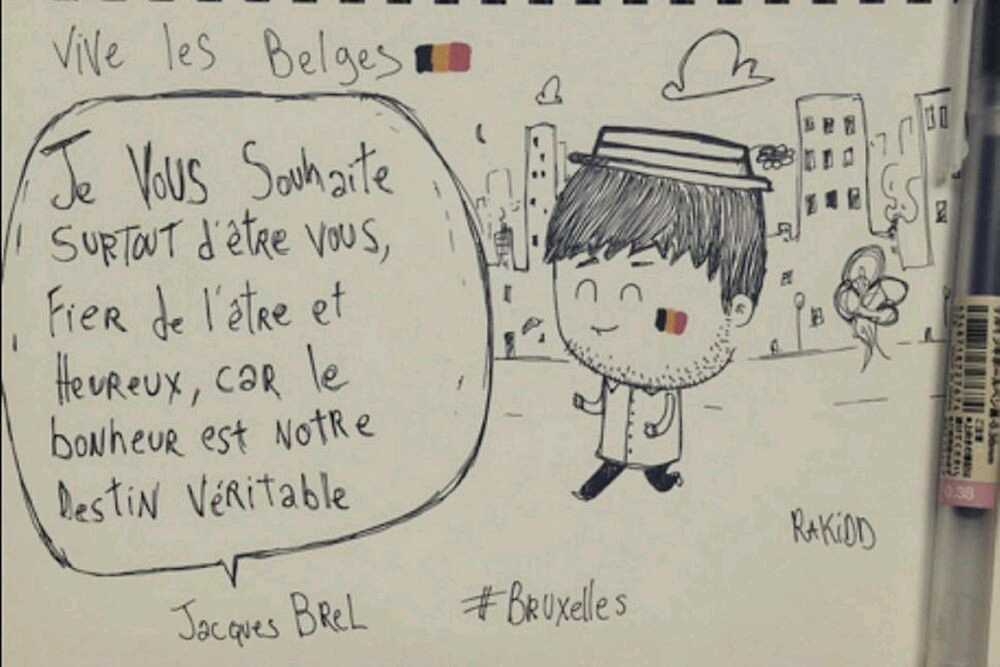 Vive les Belges
Je Vous Souhaite
SURTOUT d'être vous,
Fier de l'être et
Heureux, car le
bonheur est Notre
Destin véritable
Jacques BReL
#BRuxelles
RAKiDD
0.38